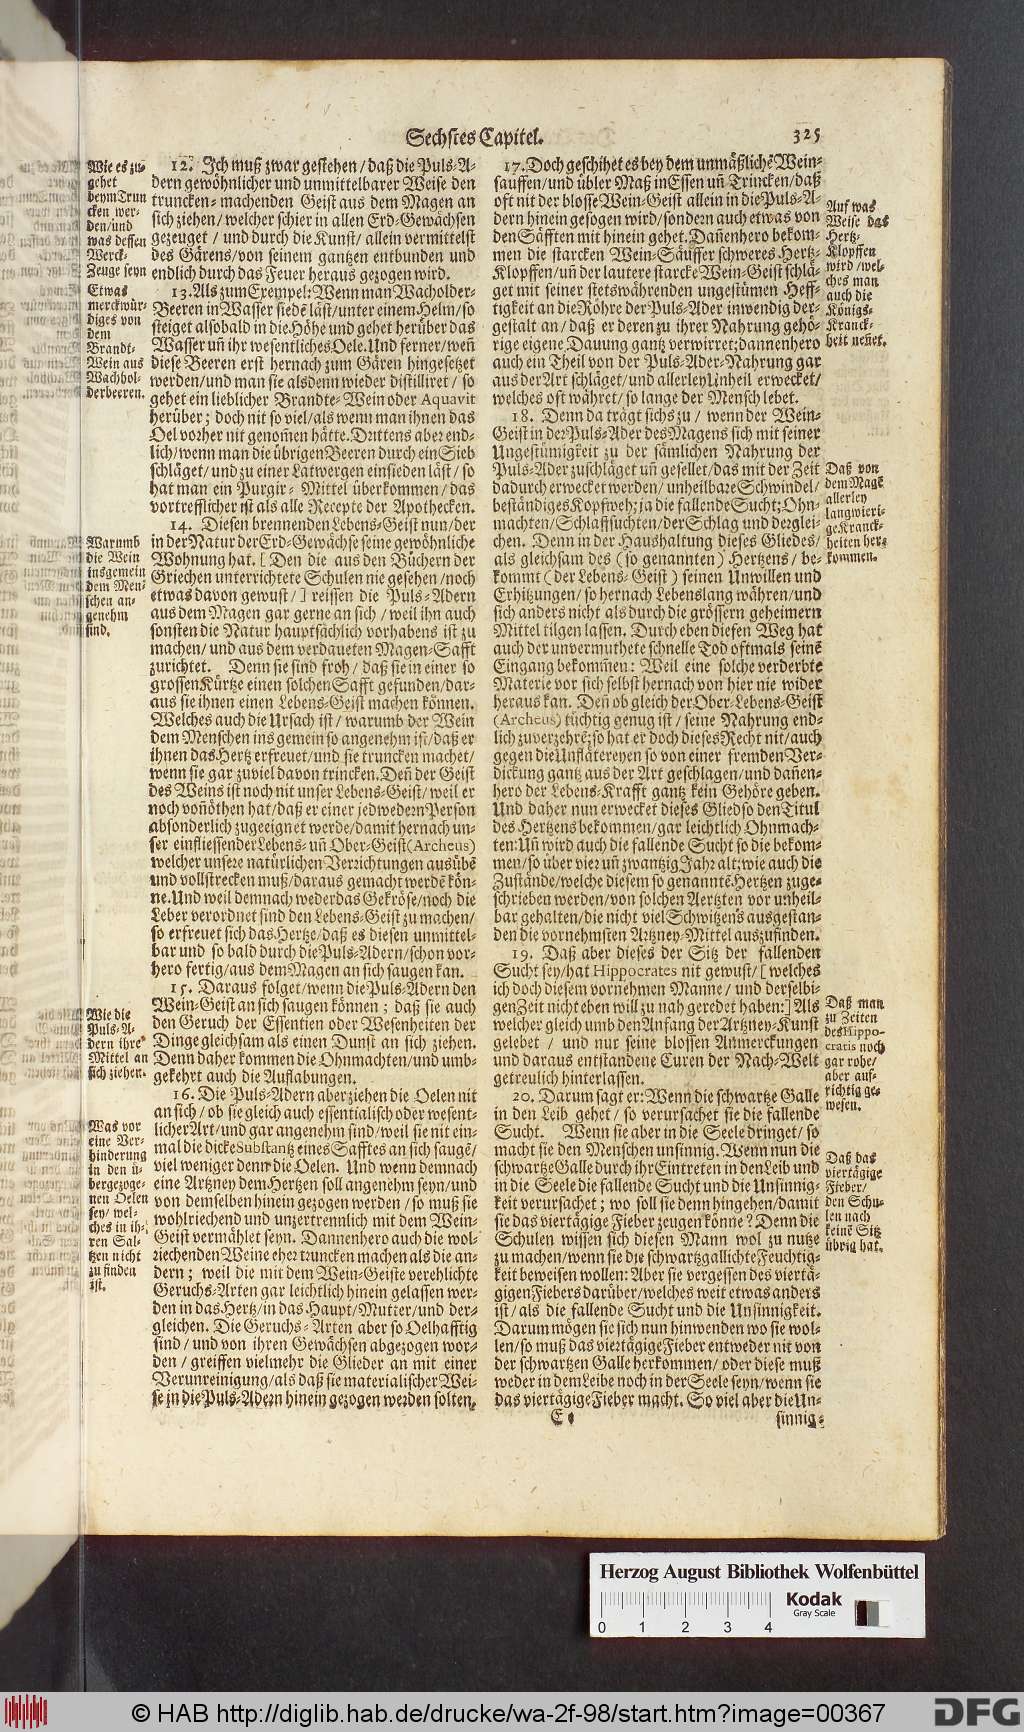 Sechstes Capitel.
325
Wie es zu-
gehet
beym Trun
cken wer-
den/und
was dessen
Werck-
Zeuge seyn
Etwas
merckwür-
diges von
dem
Brandt-
Wein aus
Wachhol-
derbeeren.
Warumb
die Wein
insgemein
dem Men-
schen an-
genehm
sind.
Wie die
Puls-A-
dern ihre
Mittel an
sich ziehen.
Was vor
eine Ver-
hinderung
in den ü-
bergezoge-
nen Oelen
sey/ wel-
ches in ih-
ren Sal-
tzen nicht
zu finden
ist.
12. Ich muß zwar gestehen/daß die Puls-A-
dern gewöhnlicher und unmittelbarer Weise den
truncken-machenden Geist aus dem Magen an
sich ziehen/welcher schier in allen Erd-Gewächsen
gezeuget / und durch die Kunst/allein vermittelst
des Gärens/von seinem gantzen entbunden und
endlich durch das Feuer heraus gezogen wird.
13. Als zum Exempel: Wenn man Wacholder-
Beeren in Wasser siedẽ läst/unter einem Helm/so
steiget alsobald in die Höhe und gehet herüber das
Wasser uñ ihr wesentliches Oele. Und ferner/weñ
diese Beeren erst hernach zum Gären hingesetzet
werden/und man sie alsdenn wieder distilliret / so
gehet ein lieblicher Brandte-Wein oder Aquavit
herüber; doch nit so viel/als wenn man ihnen das
Oel vorher nit genom̃en hätte. Drittens aber end-
lich/wenn man die übrigen Beeren durch ein Sieb
schläget/und zu einer Latwergen einsieden läst/ so
hat man ein Purgir- Mittel überkommen/das
vortrefflicher ist als alle Recepte der Apothecken.
14. Diesen brennenden Lebens-Geist nun/der
in der Natur der Erd-Gewächse seine gewöhnliche
Wohnung hat. [ Den die aus den Büchern der
Griechen unterrichtete Schulen nie gesehen/noch
etwas davon gewust/] reissen die Puls-Adern
aus dem Magen gar gerne an sich / weil ihn auch
sonsten die Natur hauptsächlich vorhabens ist zu
machen/und aus dem verdaueten Magen-Safft
zurichtet. Denn sie sind froh/ daß sie in einer so
grossen Kürtze einen solchen Safft gefunden/dar-
aus sie ihnen einen Lebens-Geist machen können.
Welches auch die Ursach ist/ warumb der Wein
dem Menschen ins gemein so angenehm ist/daß er
ihnen das Hertz erfreuet/und sie truncken machet/
wenn sie gar zuviel davon trincken. Deñ der Geist
des Weins ist noch nit unser Lebens-Geist/ weil er
noch voñöthen hat/daß er einer jedwedern Person
absonderlich zugeeignet werde/damit hernach un-
ser einfliessender Lebens- uñ Ober-Geist(Archeus)
welcher unsere natürlichen Verrichtungen ausübẽ
und vollstrecken muß/daraus gemacht werdẽ kön-
ne. Und weil demnach weder das Gekröse/noch die
Leber verordnet sind den Lebens-Geist zu machen/
so erfreuet sich das Hertze/daß es diesen unmittel-
bar und so bald durch die Puls-Adern/schon vor-
hero fertig/aus dem Magen an sich saugen kan.
15. Daraus folget/wenn die Puls-Adern den
Wein-Geist an sich saugen können; daß sie auch
den Geruch der Essentien oder Wesenheiten der
Dinge gleichsam als einen Dunst an sich ziehen.
Denn daher kommen die Ohnmachten/und umb-
gekehrt auch die Auflabungen.
16. Die Puls-Adern aber ziehen die Oelen nit
an sich/ob sie gleich auch essentialisch oder wesent-
licher Art/und gar angenehm sind/weil sie nit ein-
mal die dicke Substantz eines Safftes an sich saugẽ/
viel weniger denn die Oelen. Und wenn demnach
eine Artzney dem Hertzen soll angenehm seyn/und
von demselben hinein gezogen werden/so muß sie
wohlriechend und unzertrennlich mit dem Wein-
Geist vermählet seyn. Dannenhero auch die wol-
riechenden Weine eher truncken machen als die an-
dern; weil die mit dem Wein-Geiste verehlichte
Geruchs-Arten gar leichtlich hinein gelassen wer-
den in das Hertz/in das Haupt/Mutter/und der-
gleichen. Die Geruchs-Arten aber so Oelhafftig
sind/und von ihren Gewächsen abgezogen wor-
den / greiffen vielmehr die Glieder an mit einer
Verunreinigung/als daß sie materialischer Wei-
se in die Puls-Adern hinein gezogen werden solten.
17. Doch geschihet es bey dem unmäßlichẽ Wein-
sauffen/und übler Maß in Essen uñ Trincken/daß
oft nit der blosse Wein-Geist allein in die Puls-A-
dern hinein gesogen wird/sondern auch etwas von
den Säfften mit hinein gehet. Dañenhero bekom-
men die starcken Wein-Säuffer schweres Hertz-
Klopffen/uñ der lautere starcke Wein-Geist schlä-
get mit seiner stetswährenden ungestümen Heff-
tigkeit an die Röhre der Puls-Ader inwendig der-
gestalt an/ daß er deren zu ihrer Nahrung gehö-
rige eigene Dauung gantz verwirret; dannenhero
auch ein Theil von der Puls-Ader-Nahrung gar
aus der Art schläget/und allerley Unheil erwecket/
welches oft währet/so lange der Mensch lebet.
18. Denn da trägt sichs zu / wenn der Wein-
Geist in der Puls-Ader des Magens sich mit seiner
Ungestümigkeit zu der sämlichen Nahrung der
Puls-Ader zuschläget uñ gesellet/das mit der Zeit
dadurch erwecket werden/unheilbare Schwindel/
beständiges Kopfweh; ja die fallende Sucht; Ohn-
machten/Schlaffsuchten/der Schlag und derglei-
chen. Denn in der Haushaltung dieses Gliedes/
als gleichsam des (so genannten) Hertzens/ be-
kommt (der Lebens-Geist) seinen Unwillen und
Erhitzungen/so hernach Lebenslang währen/und
sich anders nicht als durch die grössern geheimern
Mittel tilgen lassen. Durch eben diesen Weg hat
auch der unvermuthete schnelle Tod oftmals seinẽ
Eingang bekom̃en: Weil eine solche verderbte
Materie vor sich selbst hernach von hier nie wider
heraus kan. Deñ ob gleich der Ober-Lebens-Geist
(Archeus) tüchtig genug ist/ seine Nahrung end-
lich zuverzehrẽ; so hat er doch dieses Recht nit/auch
gegen die Unflätereyen so von einer fremden Ver-
dickung gantz aus der Art geschlagen/und dañen-
hero der Lebens-Krafft gantz kein Gehöre geben.
Und daher nun erwecket dieses Glied so den Titul
des Hertzens bekommen/gar leichtlich Ohnmach-
ten: Uñ wird auch die fallende Sucht so die bekom-
men/so über vier uñ zwantzig Jahr alt: wie auch die
Zustände/welche diesem so genanntẽ Hertzen zuge-
schrieben werden/von solchen Aertzten vor unheil-
bar gehalten/die nicht viel Schwitzens ausgestan-
den die vornehmsten Artzney-Mittel auszufinden.
19. Daß aber dieses der Sitz der fallenden
Sucht sey/hat Hippocrates nit gewust/ [ welches
ich doch diesem vornehmen Manne/ und derselbi-
gen Zeit nicht eben will zu nah geredet haben:] Als
welcher gleich umb den Anfang der Artzney-Kunst
gelebet / und nur seine blossen Anmerckungen
und daraus entstandene Curen der Nach-Welt
getreulich hinterlassen.
20. Darum sagt er: Wenn die schwartze Galle
in den Leib gehet/ so verursachet sie die fallende
Sucht. Wenn sie aber in die Seele dringet/ so
macht sie den Menschen unsinnig. Wenn nun die
schwartze Galle durch ihr Eintreten in den Leib und
in die Seele die fallende Sucht und die Unsinnig-
keit verursachet; wo soll sie denn hingehen/damit
sie das viertägige Fieber zeugen könne? Denn die
Schulen wissen sich diesen Mann wol zu nutze
zu machen/wenn sie die schwartzgallichte Feuchtig-
keit beweisen wollen: Aber sie vergessen des viertä-
gigen Fiebers darüber/welches weit etwas anders
ist/ als die fallende Sucht und die Unsinnigkeit.
Darum mögen sie sich nun hinwenden wo sie wol-
len/so muß das viertägige Fieber entweder nit von
der schwartzen Galle herkommen/oder diese muß
weder in dem Leibe noch in der Seele seyn/wenn sie
das viertägige Fieber macht. So viel aber die Un-
sinnig-
Auf was
Weise das
Hertz-
Klopffen
wird/wel-
ches man
auch die
Königs-
Kranck-
heit neñet.
Daß von
dem Magẽ
allerley
langwieri-
ge Kranck-
heiten her-
kommen.
Daß man
zu Zeiten
des Hippo-
cratis noch
gar rohe/
aber auf-
richtig ge-
wesen.
Daß das
viertägige
Fieber/
den Schu-
len nach
keinẽ Sitz
übrig hat.
Herzog August Bibliothek Wolfenbüttel
Kodak
Gray Scale
0 1 2 3 4
© HAB http://diglib.hab.de/drucke/wa-2f-98/start.htm?image=00367
DFG